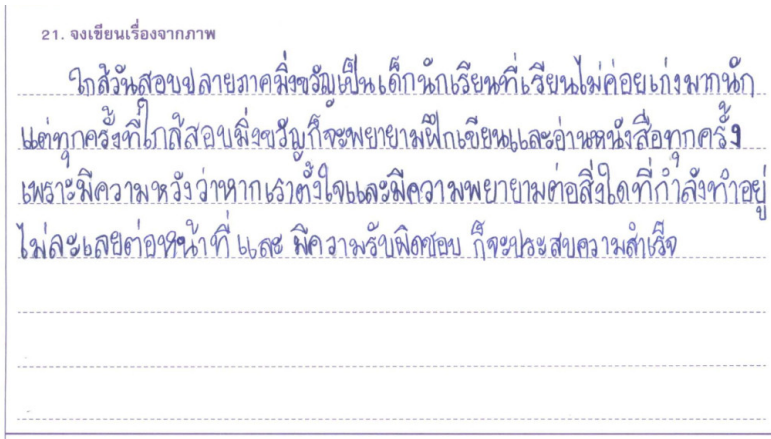 21. จงเขียนเรื่องจากภาพ
ใกล้วันสอบปลายภาคมิ่งขวัญเป็นเด็กนักเรียนที่เรียนไม่ค่อยเก่งมากนัก
แต่ทุกครั้งที่ใกล้สอบมิ่งขวัญก็จะพยายามฝึกเขียนและอ่านหนังสือทุกครั้ง
เพราะมีความหวังว่าหากเราตั้งใจและมีความพยายามต่อสิ่งใดที่กำลังทำอยู่
ไม่ละเลยต่อหน้าที่ และ มีความรับผิดชอบ ก็จะประสบความสำเร็จ